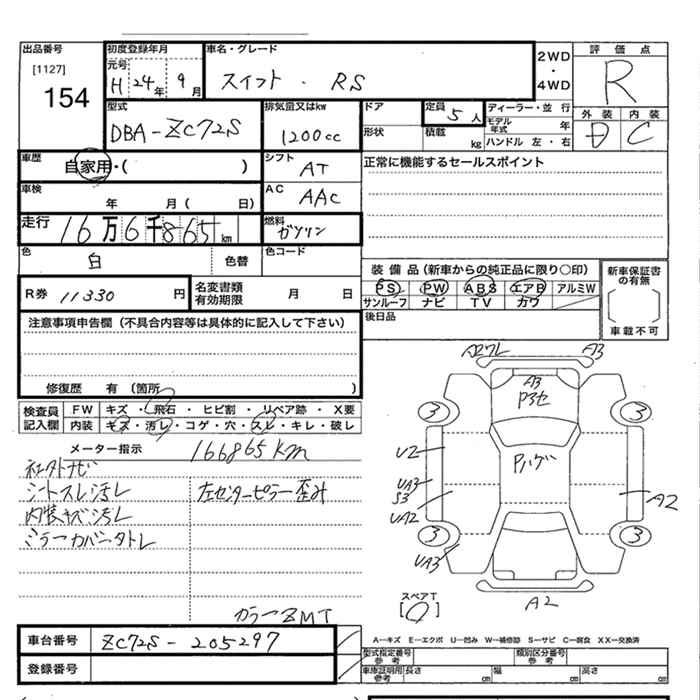 出品番号
[1127]
154
初度登録年月
元号
H 24年 9月
車名・グレード
スイフト ・ RS
2WD
・
4WD
評価点
R
型式
DBA-ZC72S
排気量又はkw
1200cc
ドア
形状
定員 5人
積載 kg
ディーラー・並行
モデル年式 年
ハンドル 左・右
外装 内装
D C
車歴
自家用・( )
シフト
AT
正常に機能するセールスポイント
車検
年 月( 日)
AC
AAC
走行
16万6千865km
燃料
ガソリン
色
白
色替
色コード
R券 11330 円
名変書類有効期限 月 日
装備品(新車からの純正品に限り○印)
PS PW ABS エアB アルミW
サンルーフ ナビ TV カワ
新車保証書の有無
[ ]
車載不可
後日品
注意事項申告欄(不具合内容等は具体的に記入して下さい)
修復歴 有(箇所 )
検査員記入欄
FW キズ・飛石・ヒビ割・リペア跡・X要
内装 キズ・汚レ・コゲ・穴・スレ・キレ・破レ
メーター指示 166865km
社外ナビ
シートスレ汚レ
左センターピラー歪み
内装キズ汚レ
ミラーカバー
A3
A3
P3セ
3
3
U2
Pハゲ
UA3
S3
UA2
A2
3
3
UA3
スペアT
A2
A—キズ E—エクボ U—凹み W—補修跡 S—サビ C—腐食 XX—交換済
車台番号 ZC72S-205297
登録番号
型式指定番号 参考
類別区分番号 参考
車庫証明用 参考 長さ cm 幅 cm 高さ cm